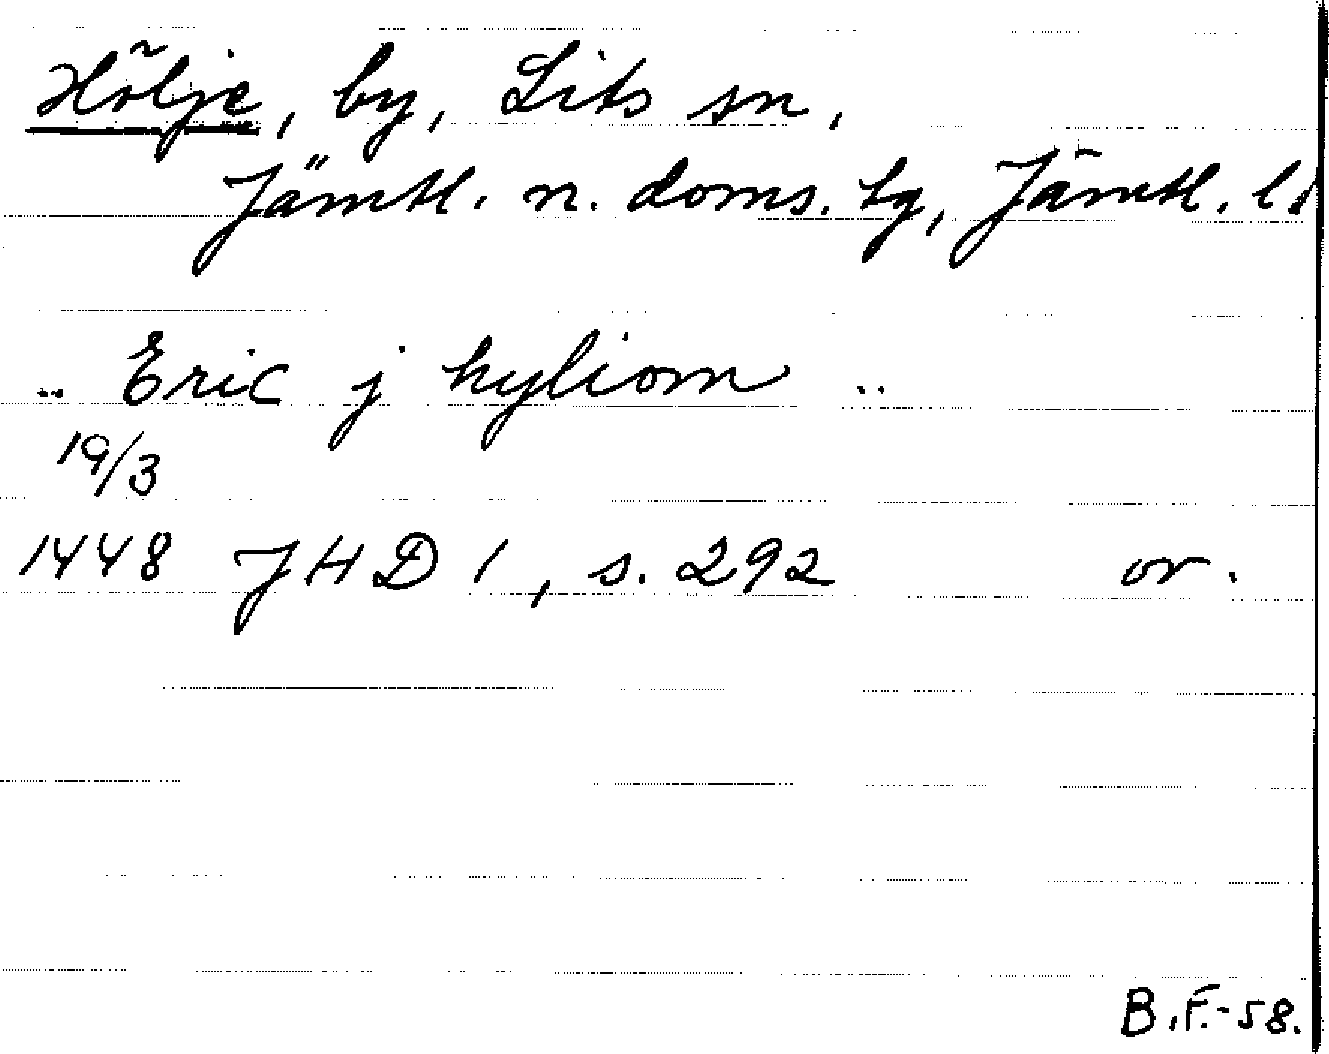 Hölje, by, Lits sn,
Jämtl. n. doms. tg, Jämtl. l.
.. Eric j hyliom ..
19/3
1448 JHD 1, s. 292 or.
B.F.-58.